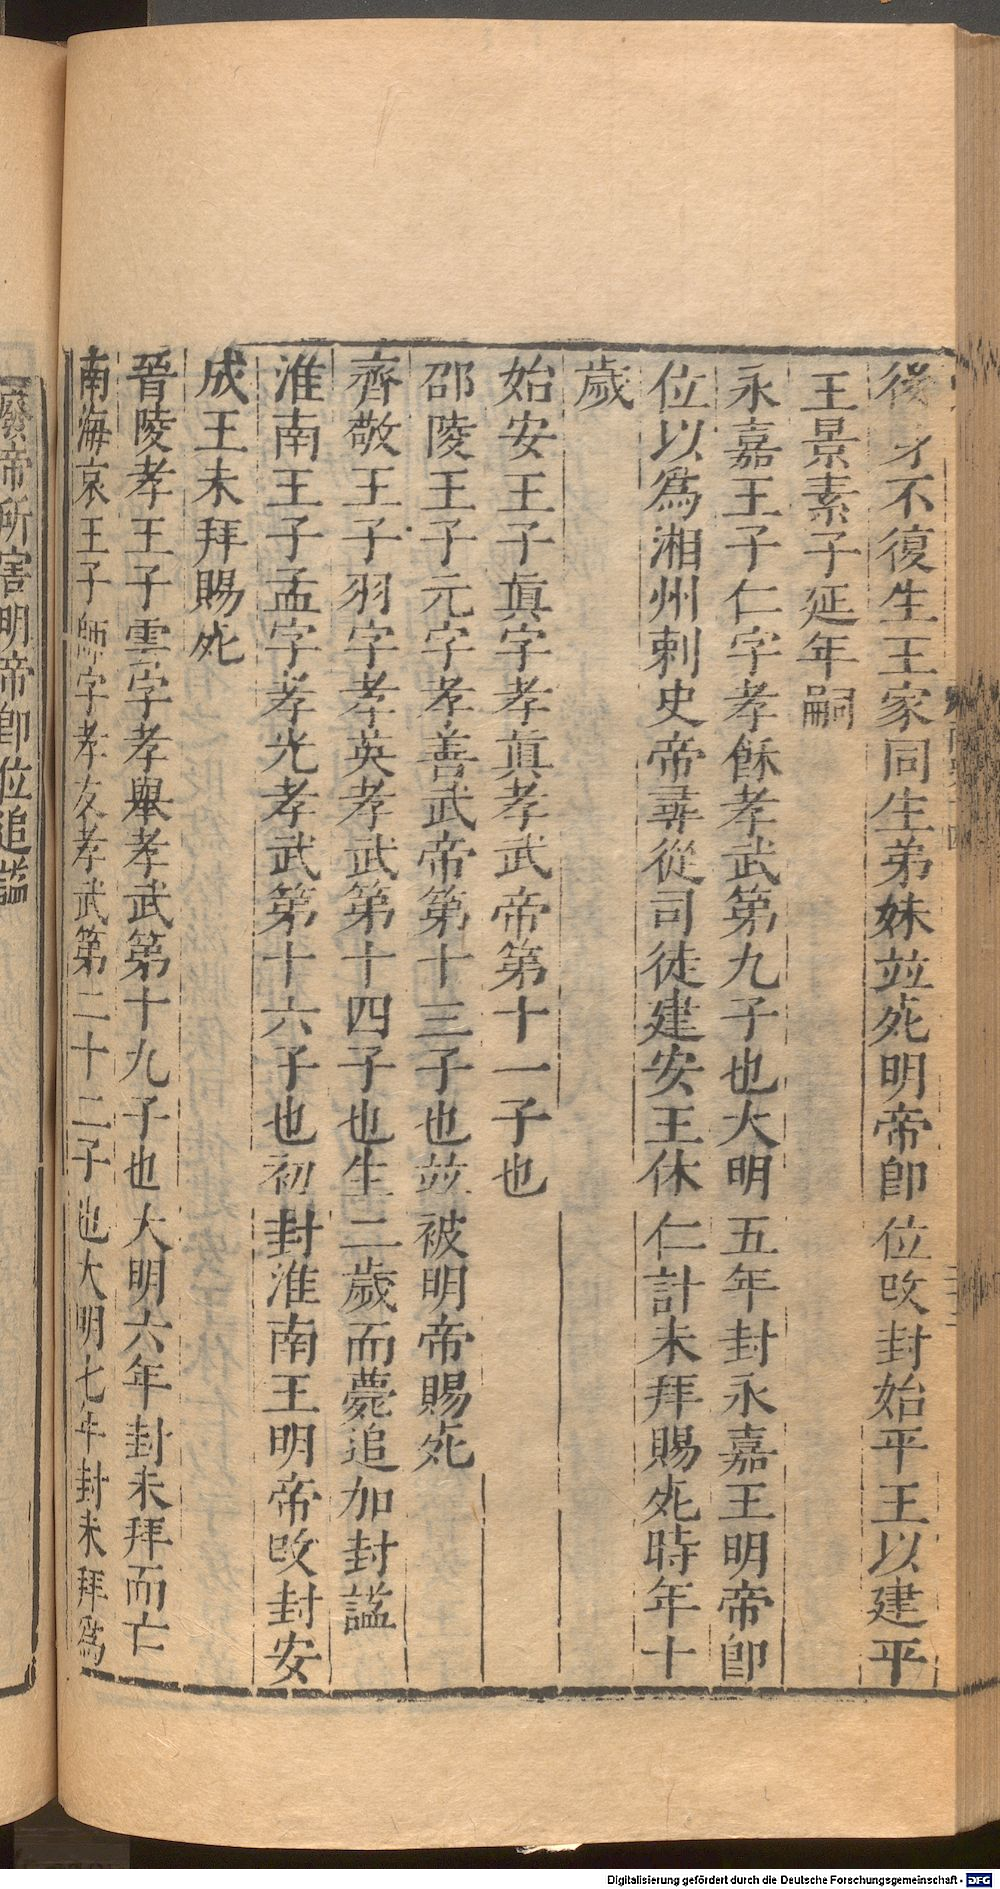 後 才不復生王家同生弟妹竝死明帝卽位攺封始平王以建平
王景素子延年嗣
永嘉王子仁字孝龢孝武第九子也大明五年封永嘉王明帝卽
位以爲湘州刺史帝尋從司徒建安王休仁計未拜賜死時年十
歲
始安王子眞字孝眞孝武帝第十一子也
邵陵王子元字孝善武帝第十三子也竝被明帝賜死
齊敬王子羽字孝英孝武第十四子也生二歲而薨追加封謚
淮南王子孟字孝光孝武第十六子也初封淮南王明帝攺封安
成王未拜賜死
晉陵孝王子雲字孝舉孝武第十九子也大明六年封未拜而亡
南海哀王子師字孝友孝武第二十二子也大明七年封未拜爲
廢帝所害明帝卽位追謚
Digitalisierung gefördert durch die Deutsche Forschungsgemeinschaft - DFG